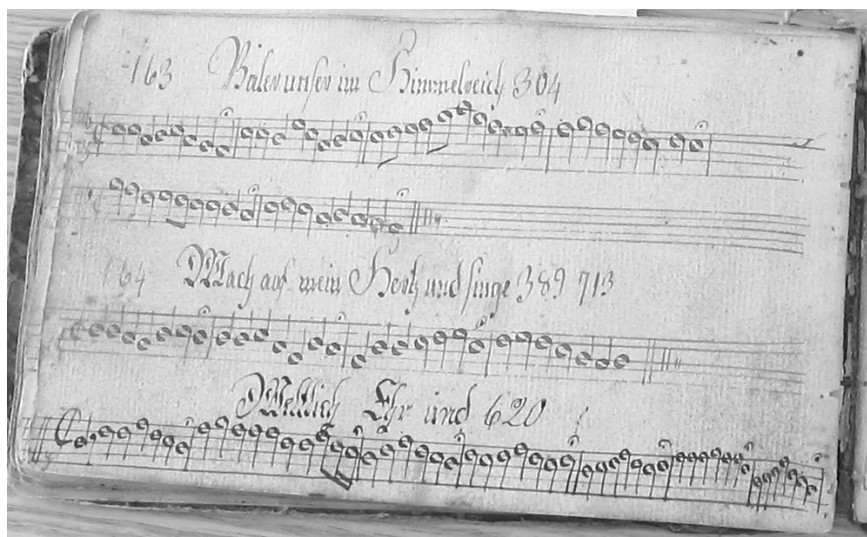 163 Vater unser im Himmelreich 304
164 Wach auf mein Hertz und singe 389 713
Weltlich Ehr und 620